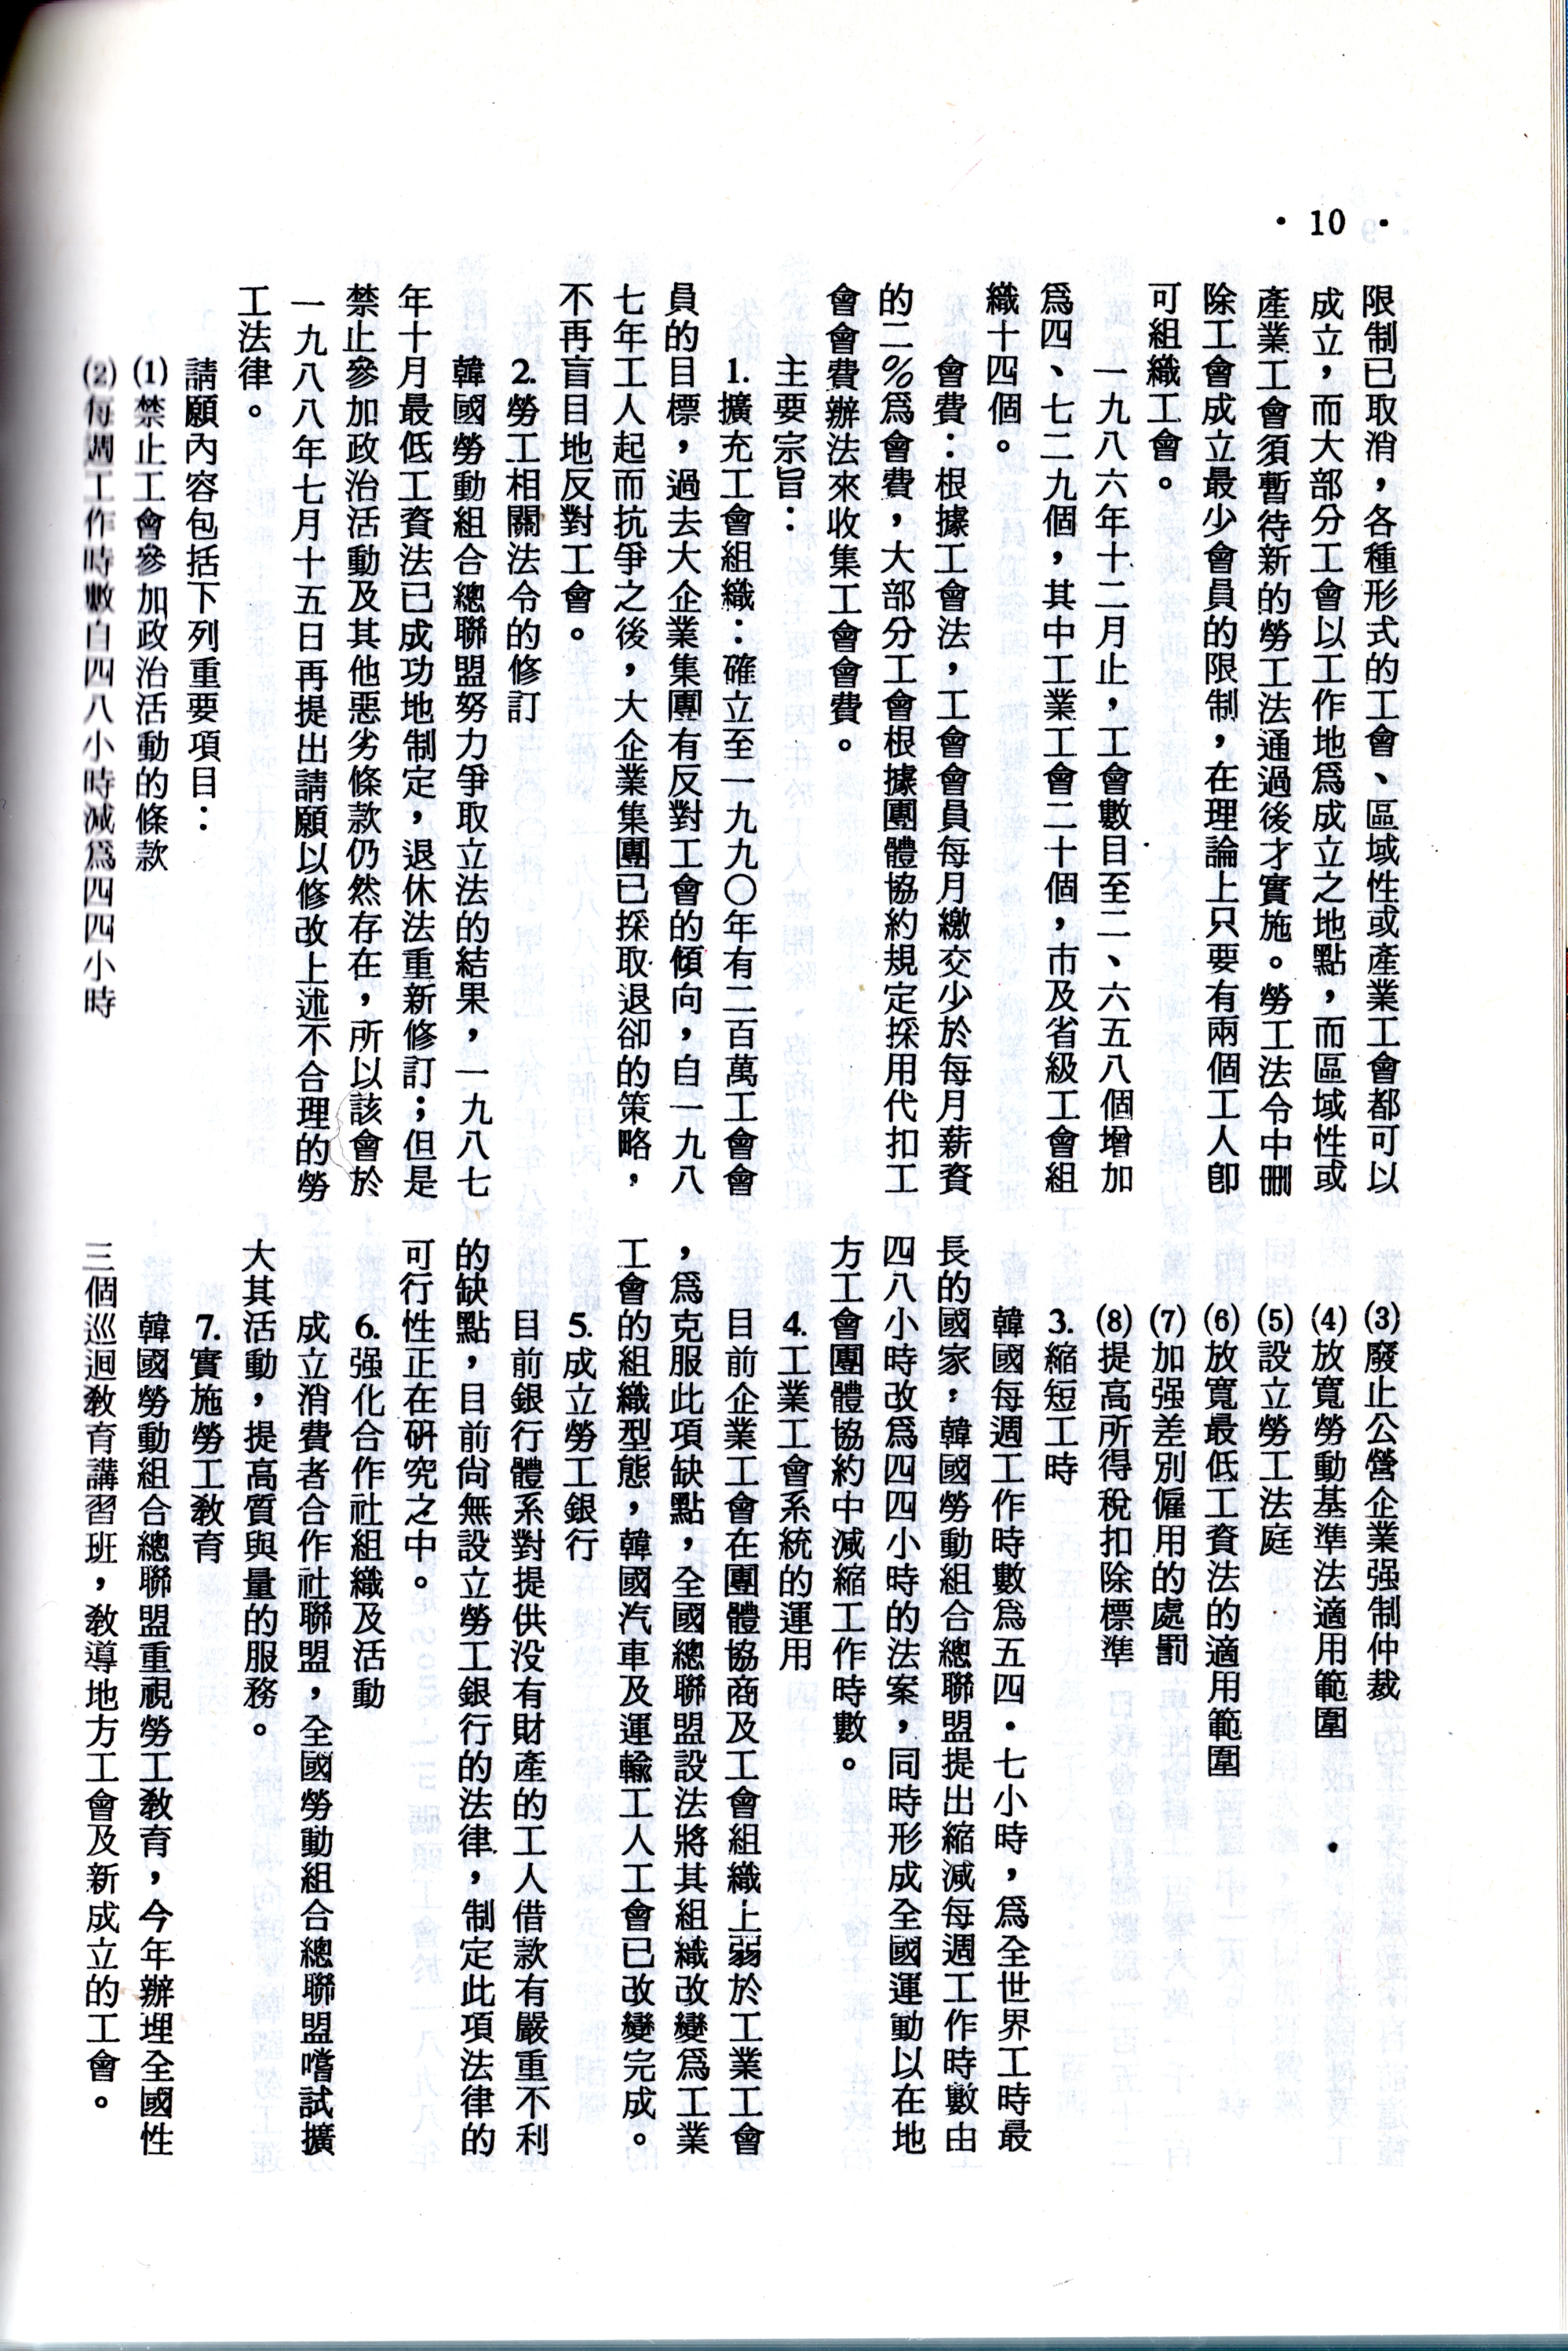 ・10・
限制已取消，各種形式的工會、區域性或產業工會都可以
成立，而大部分工會以工作地爲成立之地點，而區域性或
產業工會須暫待新的勞工法通過後才實施。勞工法令中刪
除工會成立最少會員的限制，在理論上只要有兩個工人卽
可組織工會。
一九八六年十二月止，工會數目至二、六五八個增加
爲四、七二九個，其中工業工會二十個，市及省級工會組
織十四個。
會費：根據工會法，工會會員每月繳交少於每月薪資
的二%爲會費，大部分工會根據團體協約規定採用代扣工
會會費辦法來收集工會會費。
主要宗旨：
1.擴充工會組織：確立至一九九〇年有二百萬工會會
員的目標，過去大企業集團有反對工會的傾向，自一九八
七年工人起而抗爭之後，大企業集團已採取退卻的策略，
不再盲目地反對工會。
2.勞工相關法令的修訂
韓國勞動組合總聯盟努力爭取立法的結果，一九八七
年十月最低工資法已成功地制定，退休法重新修訂；但是
禁止參加政治活動及其他惡劣條款仍然存在，所以該會於
一九八八年七月十五日再提出請願以修改上述不合理的勞
工法律。
請願內容包括下列重要項目：
⑴禁止工會參加政治活動的條款
⑵每週工作時數自四八小時減爲四四小時
⑶廢止公營企業强制仲裁
⑷放寬勞動基準法適用範圍
⑸設立勞工法庭
⑹放寬最低工資法的適用範圍
⑺加强差別僱用的處罰
⑻提高所得稅扣除標準
3.縮短工時
韓國每週工作時數爲五四・七小時，爲全世界工時最
長的國家，韓國勞動組合總聯盟提出縮減每週工作時數由
四八小時改爲四四小時的法案，同時形成全國運動以在地
方工會團體協約中減縮工作時數。
4.工業工會系統的運用
目前企業工會在團體協商及工會組織上弱於工業工會
，爲克服此項缺點，全國總聯盟設法將其組織改變爲工業
工會的組織型態，韓國汽車及運輸工人工會已改變完成。
5.成立勞工銀行
目前銀行體系對提供没有財產的工人借款有嚴重不利
的缺點，目前尙無設立勞工銀行的法律，制定此項法律的
可行性正在研究之中。
6.强化合作社組織及活動
成立消費者合作社聯盟，全國勞動組合總聯盟嚐試擴
大其活動，提高質與量的服務。
7.實施勞工敎育
韓國勞動組合總聯盟重視勞工敎育，今年辦理全國性
三個巡迴敎育講習班，敎導地方工會及新成立的工會。